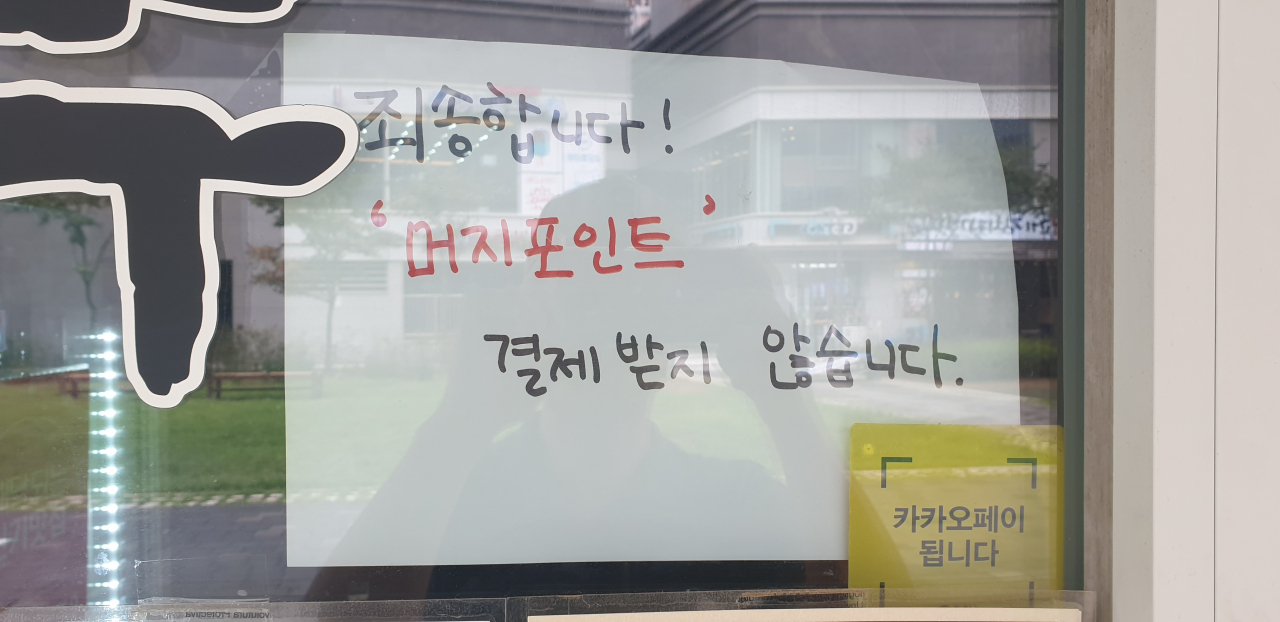 죄송합니다!
'머지포인트'
결제 받지 않습니다.
카카오페이
됩니다